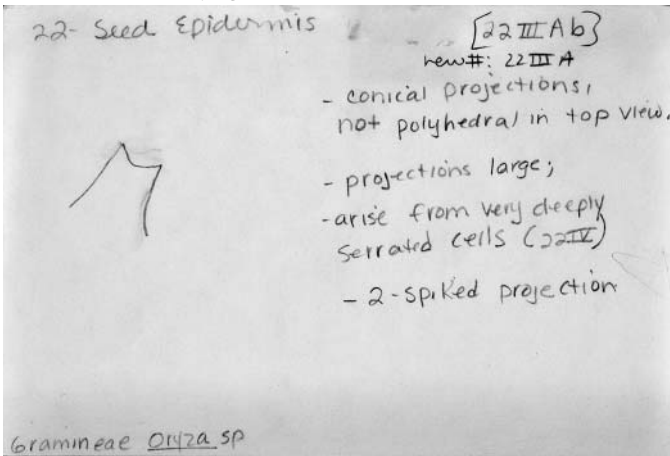 22- Seed Epidermis
[22 III Ab]
new#: 22 III A
- conical projections,
not polyhedral in top view.
- projections large;
- arise from very deeply
serrated cells (22IV)
- 2-spiked projection
Gramineae Oryza sp